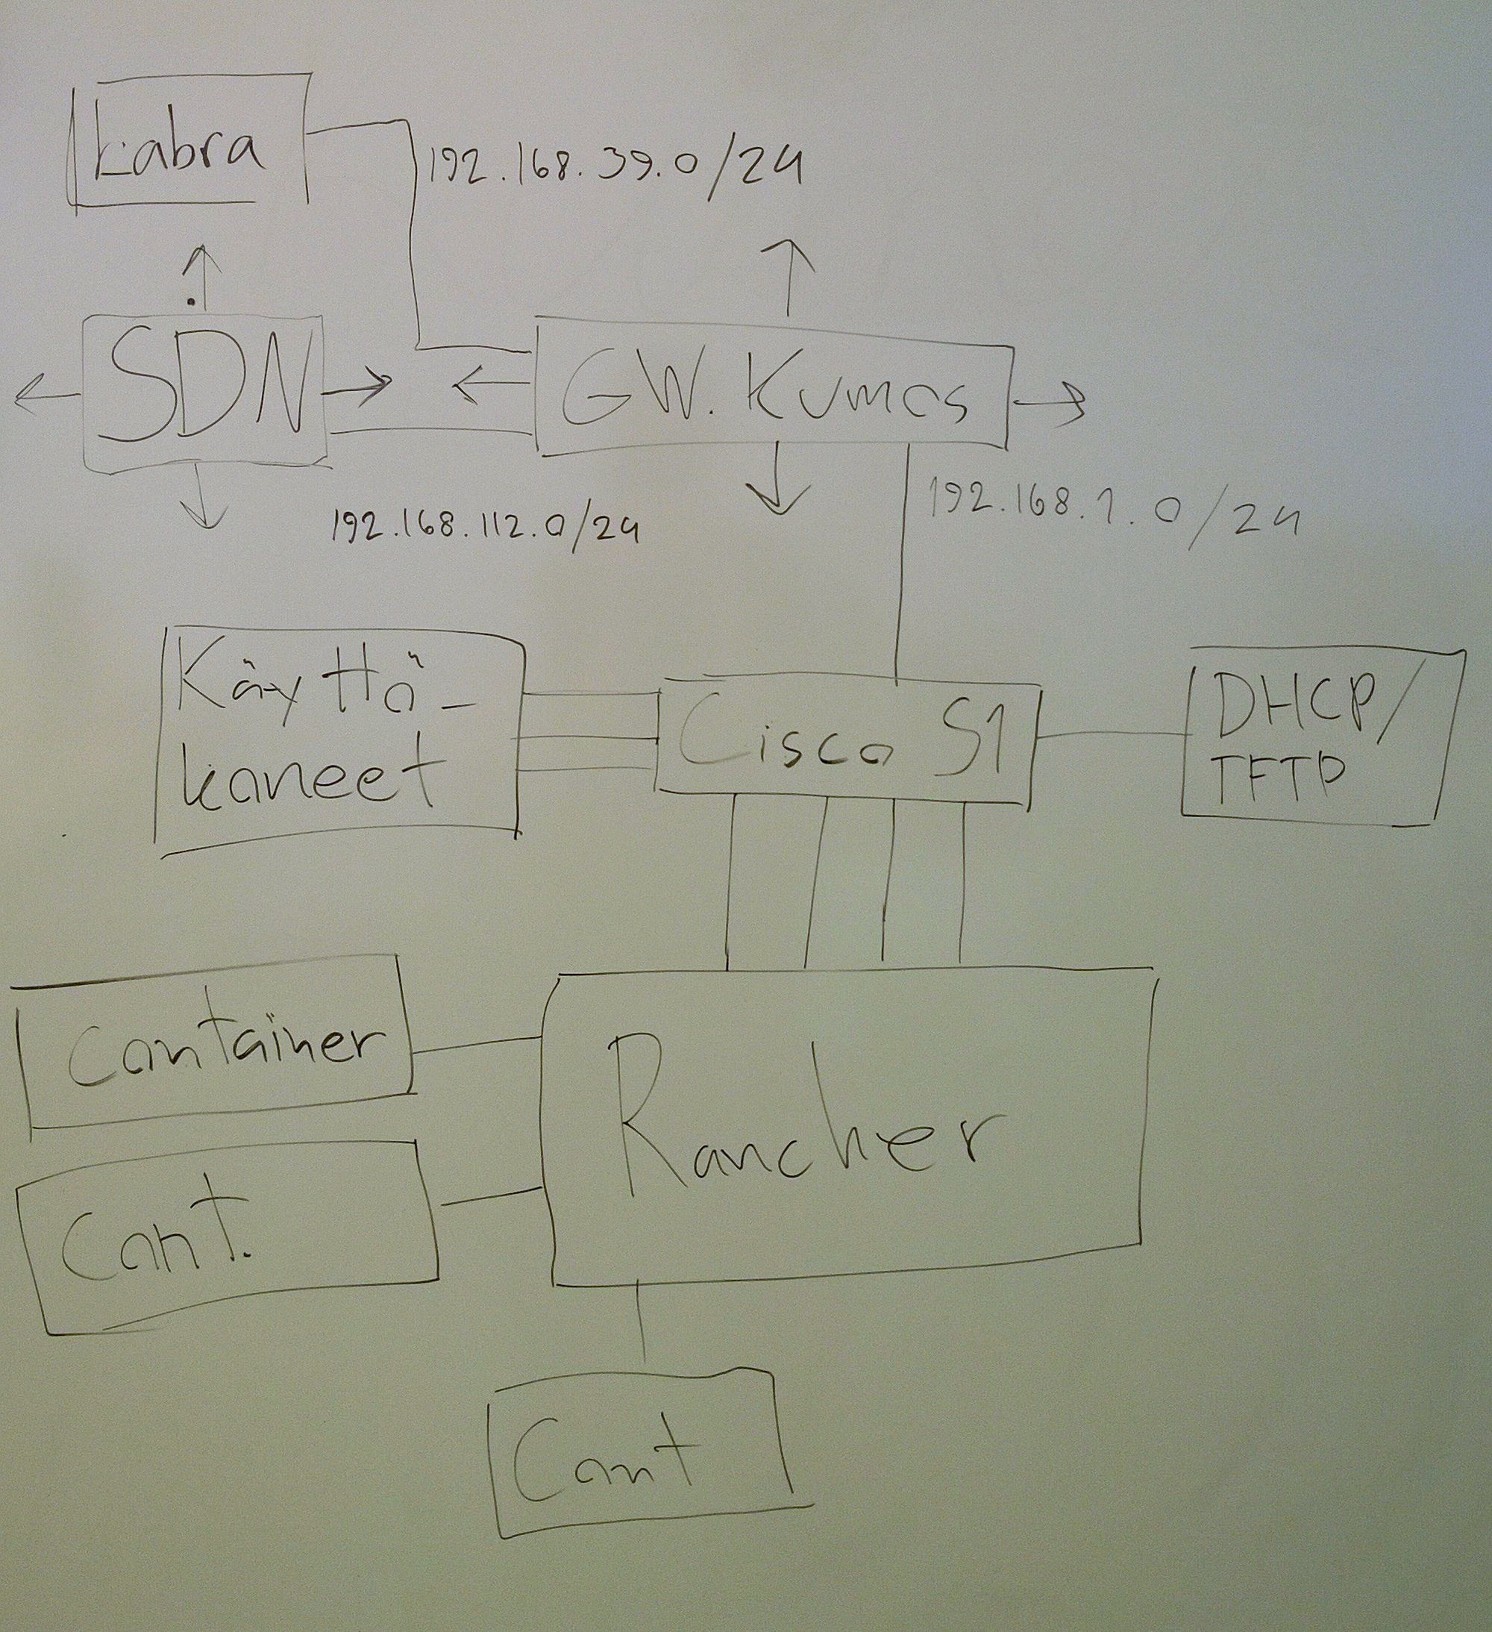 Labra
192.168.39.0/24
SDN
GW. Kumos
192.168.112.0/24
192.168.1.0/24
Käyttö-
koneet
Cisco S1
DHCP/
TFTP
Container
Cont.
Rancher
Cont